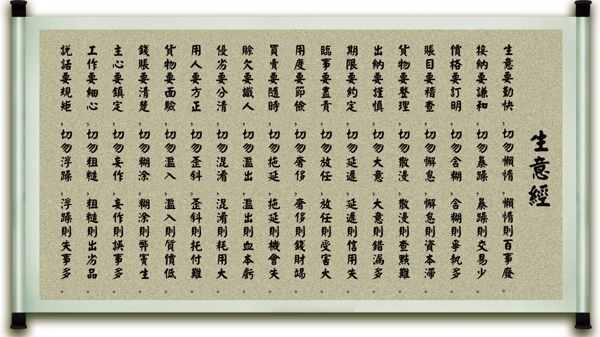 生意經
生意要勤快，切勿懶惰，懶惰則百事廢。
接納要謙和，切勿暴躁，暴躁則交易少。
價格要訂明，切勿含糊，含糊則爭執多。
賬目要稽查，切勿懈怠，懈怠則資本滯。
貨物要整理，切勿散漫，散漫則查點難。
出納要謹慎，切勿大意，大意則錯漏多。
期限要約定，切勿延遲，延遲則信用失。
臨事要盡責，切勿放任，放任則受害大。
用度要節儉，切勿奢侈，奢侈則錢財竭。
買賣要隨時，切勿拖延，拖延則機會失。
賒欠要識人，切勿濫出，濫出則血本虧。
優劣要分清，切勿混淆，混淆則耗用大。
用人要方正，切勿歪斜，歪斜則托付難。
貨物要面驗，切勿濫入，濫入則質價低。
錢賬要清楚，切勿糊涂，糊涂則弊竇生。
主心要鎮定，切勿妄作，妄作則誤事多。
工作要細心，切勿粗糙，粗糙則出劣品。
說話要規矩，切勿浮躁，浮躁則失事多。